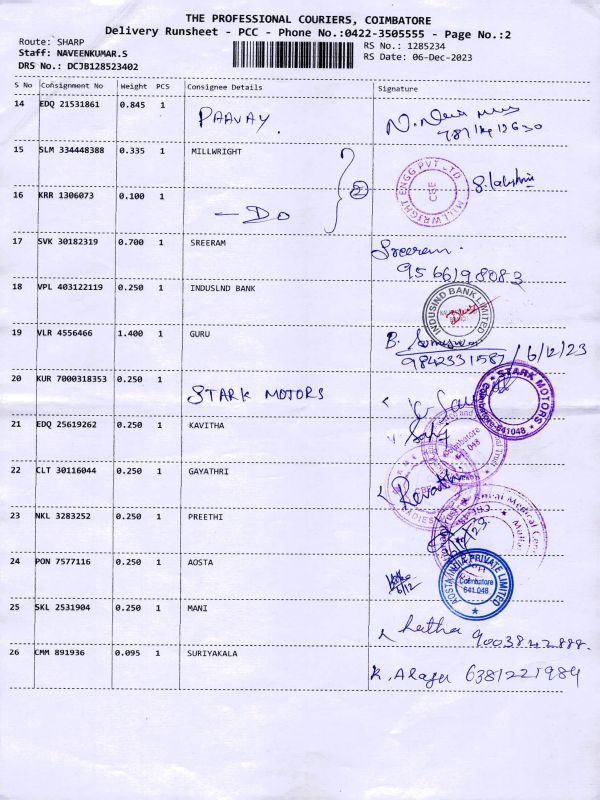 THE PROFESSIONAL COURIERS, COIMBATORE
Delivery Runsheet - PCC - Phone No.:0422-3505555 - Page No.:2
Route: SHARP
Staff: NAVEENKUMAR.S
DRS No.: DCJB128523402
RS No.: 1285234
RS Date: 06-Dec-2023
S No Consignment No Weight PCS Consignee Details Signature
14 EDQ 21531861 0.845 1 PAAVAY.
15 SLM 334448388 0.335 1 MILLWRIGHT
MILLWRIGHT ENGG PVT LTD CBE
16 KRR 1306073 0.100 1 - DO 2
17 SVK 30182319 0.700 1 SREERAM Sreeram.
9566198083
18 VPL 403122119 0.250 1 INDUSLND BANK
INDUSIND BANK LIMITED
19 VLR 4556466 1.400 1 GURU B.
9842331587 / 6/12/23
20 KUR 7000318353 0.250 1 STARK MOTORS
STARK MOTORS Coimbatore-641048
21 EDQ 25619262 0.250 1 KAVITHA
Coimbatore 641 048
22 CLT 30116044 0.250 1 GAYATHRI Revathi
23 NKL 3283252 0.250 1 PREETHI
24 PON 7577116 0.250 1 AOSTA
6/12
AOSTA INDIA PRIVATE LIMITED Coimbatore 641.048
25 SKL 2531904 0.250 1 MANI Latha 9003842888.
26 CMM 891936 0.095 1 SURIYAKALA K. Alagu 6381221984